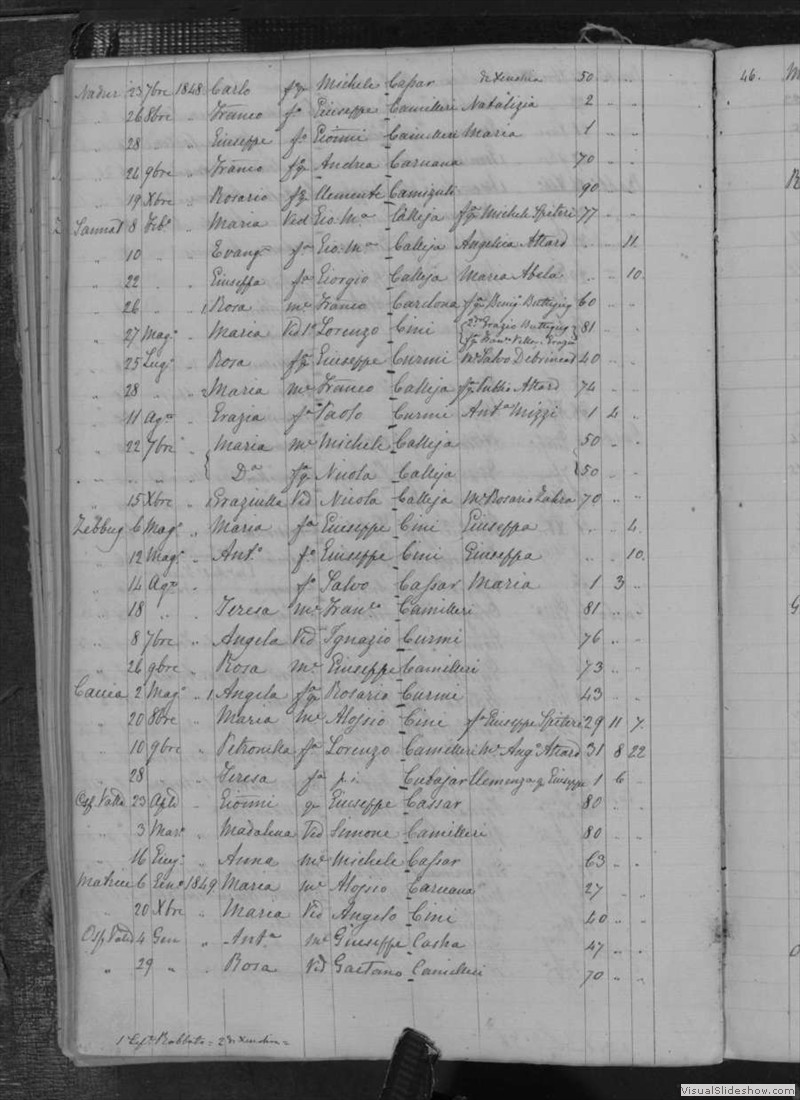 Nadur 23 7bre 1848 Carlo fq Michele Cassar di Xeuchia 50 " "
" 26 8bre " Franco fo Giuseppe Camilleri Natalizia 2 " "
" 28 " " Giuseppe fo Gionni Camilleri Maria 1 " "
" 26 9bre " Franco fq Andrea Caruana 70 " "
" 19 Xbre " Rosario fq Clemente Camizuli 90 " "
Sannat 8 Feb° " Maria Ved Gio. Ma Calleja fq Michele Spiteri 77 " "
" 10 " " Evanga fa Gio. Ma Calleja Angelica Attard " " 11
" 22 " " Giuseppa fa Giorgio Calleja Maria Abela " " 10.
" 26 " 1 Rosa me Franco Cardona fq Buttigieg 60 " "
" 27 Mago " Maria Ved 1o Lorenzo Cini { 2do Grazio Buttigieg } 81 " "
" 25 Lugo " Rosa fq Giuseppe Curmi Me Salvo Debrincat 40 " "
" 28 " 2 Maria me Franco Calleja fq Attard 74 " "
" 11 Ago " Grazia fa Paolo Curmi Anta Mizzi 1 4 "
" 22 7bre " Maria me Michele Calleja 50 " "
" " " " Da fq Nicola Calleja 50 " "
" 15 Xbre 1 Graziulla Ved Nicola Calleja Me Rosario Zabra 70 " "
Zebbug 6 Mago " Maria fa Giuseppe Cini Giuseppa " " 4.
" 12 Mago " Anto fo Giuseppe Cini Giuseppa " " 10.
" 14 Ago " fo Salvo Cassar Maria 1 3 "
" 18 " " Teresa me Franco Camilleri 81 " "
" 8 7bre " Angela Ved Ignazio Curmi 76 " "
" 26 9bre " Rosa me Giuseppe Camilleri 73 " "
Caccia 2 Mago " 1 Angela fq Rosario Curmi 43 " "
" 20 8bre " Maria me Aloysio Cini fa Giuseppe Spiteri 29 11 7.
" 10 9bre " Petronilla fa Lorenzo Camilleri Me Ango Attard 31 8 22
" 28 " " Teresa fa p. i. Cubajar Clemenza q Giuseppe 1 6 "
Osp Vatta 23 Aple " Gionni q Giuseppe Cassar 80 " "
" 3 Maro " Madalena Ved Simone Camilleri 80 " "
" 16 Giugo " Anna me Michele Cassar 63 " "
Matrice 6 Geno 1849 Maria me Aloysio Caruana 27 " "
" 20 Xbre " Maria Ved Angelo Cini 40 " "
Osp Vatta 4 Gen " Anta me Giuseppe Casha 47 " "
" 29 " " Rosa Ved Gaetano Camilleri 70 " "
Rabbato = 2 di Xeuchia =
46. M
VisualSlideshow.com